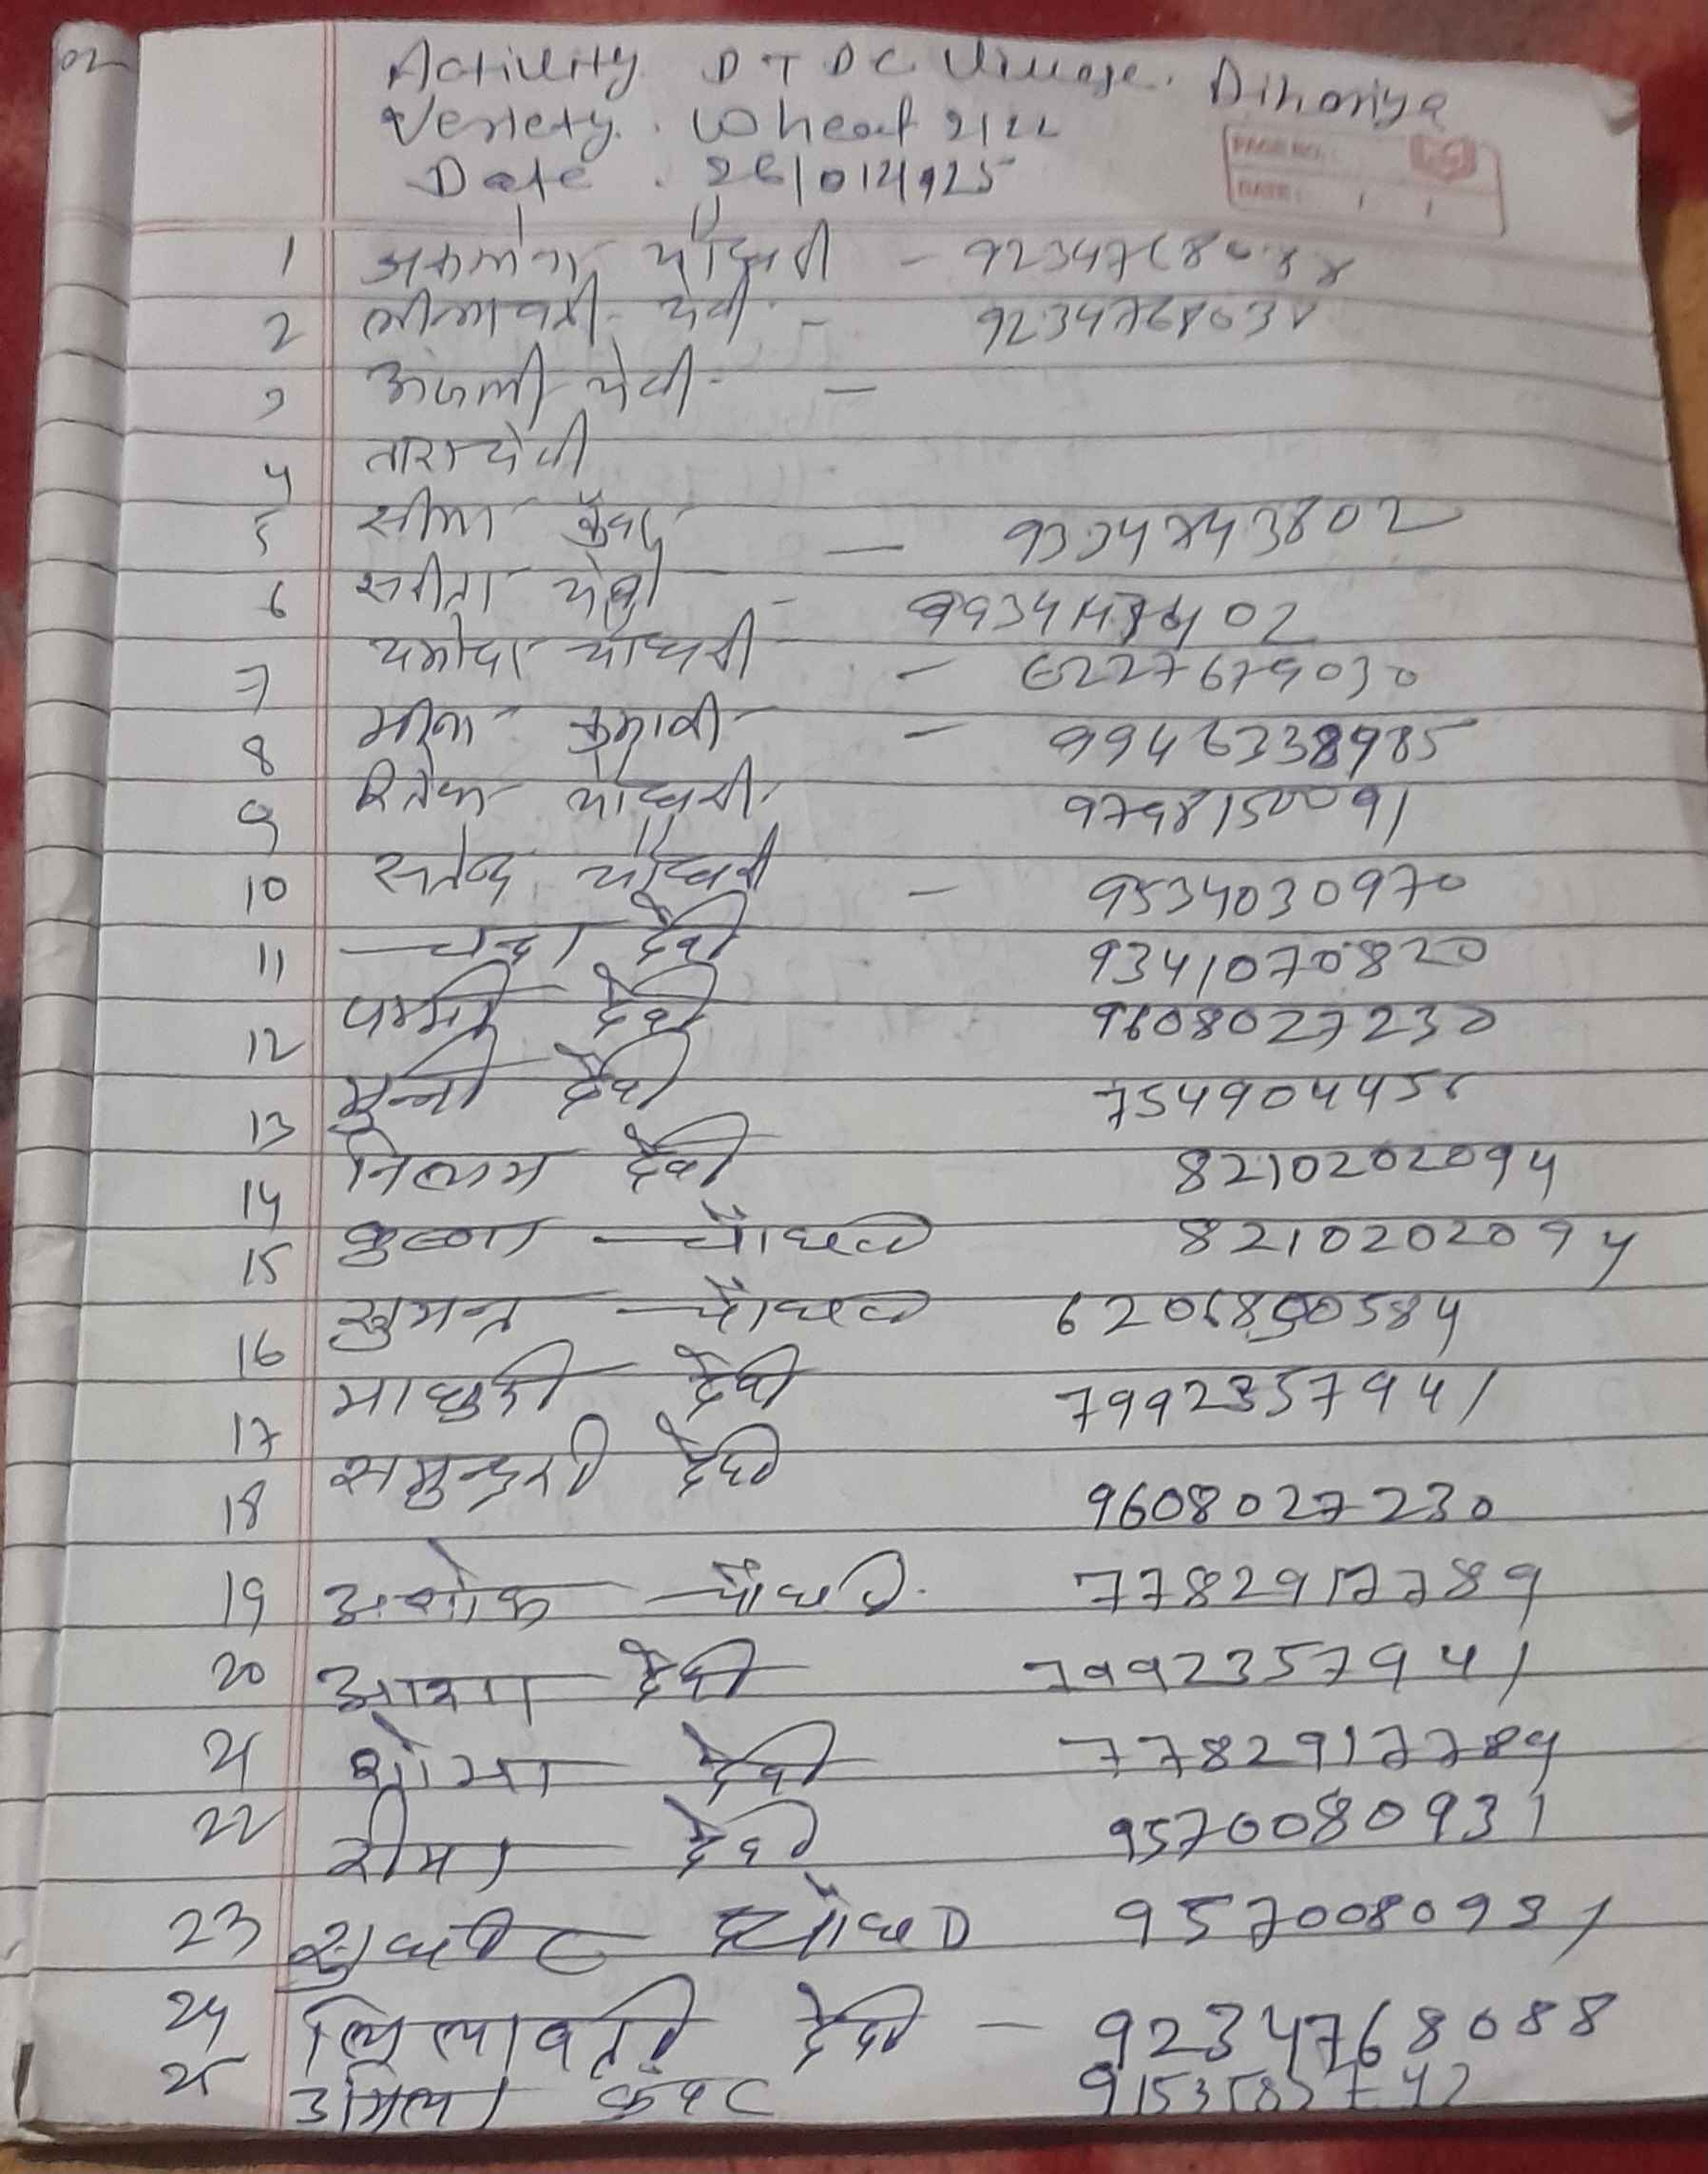 02
Activity. D T D C Village. Dihariya
Veriety. Wheat 2122
Date.
PAGE NO.:
DATE: / /
1 चौधरी - 
2 लीलावती देवी - 
3 अंजली देवी -
4 तारा देवी
5 सीमा कुँवर - 9334743802
6 सरीता देवी -
7 यसोदा चौधरी - 6227679030
8 मीना कुमारी -
9 रितेश चौधरी 9798150091
10 सतेन्द्र चौधरी - 9534030970
11 चन्दा देवी 9341070820
12 पम्मी देवी 9608027230
13 मुन्नी देवी 7549044456
14 निलम देवी 8210202094
15 कृष्णा चौधरी 8210202094
16 सुमन्त चौधरी
17 माधुरी देवी 7992357941
18 समुन्द्री देवी 9608027230
19 अशोक चौधरी 7782917789
20 आशा देवी 7992357941
21 शोभा देवी 7782917789
22 रीमा देवी 9570080931
23 सुधीर चौधरी 9570080931
24 लिलावती देवी - 9234768088
25 उर्मिला कुँवर